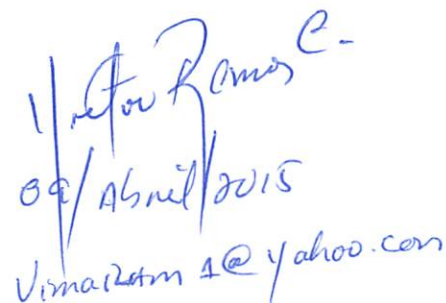 Victor Ramos C.
09/Abril/2015
Vimaram1@yahoo.com